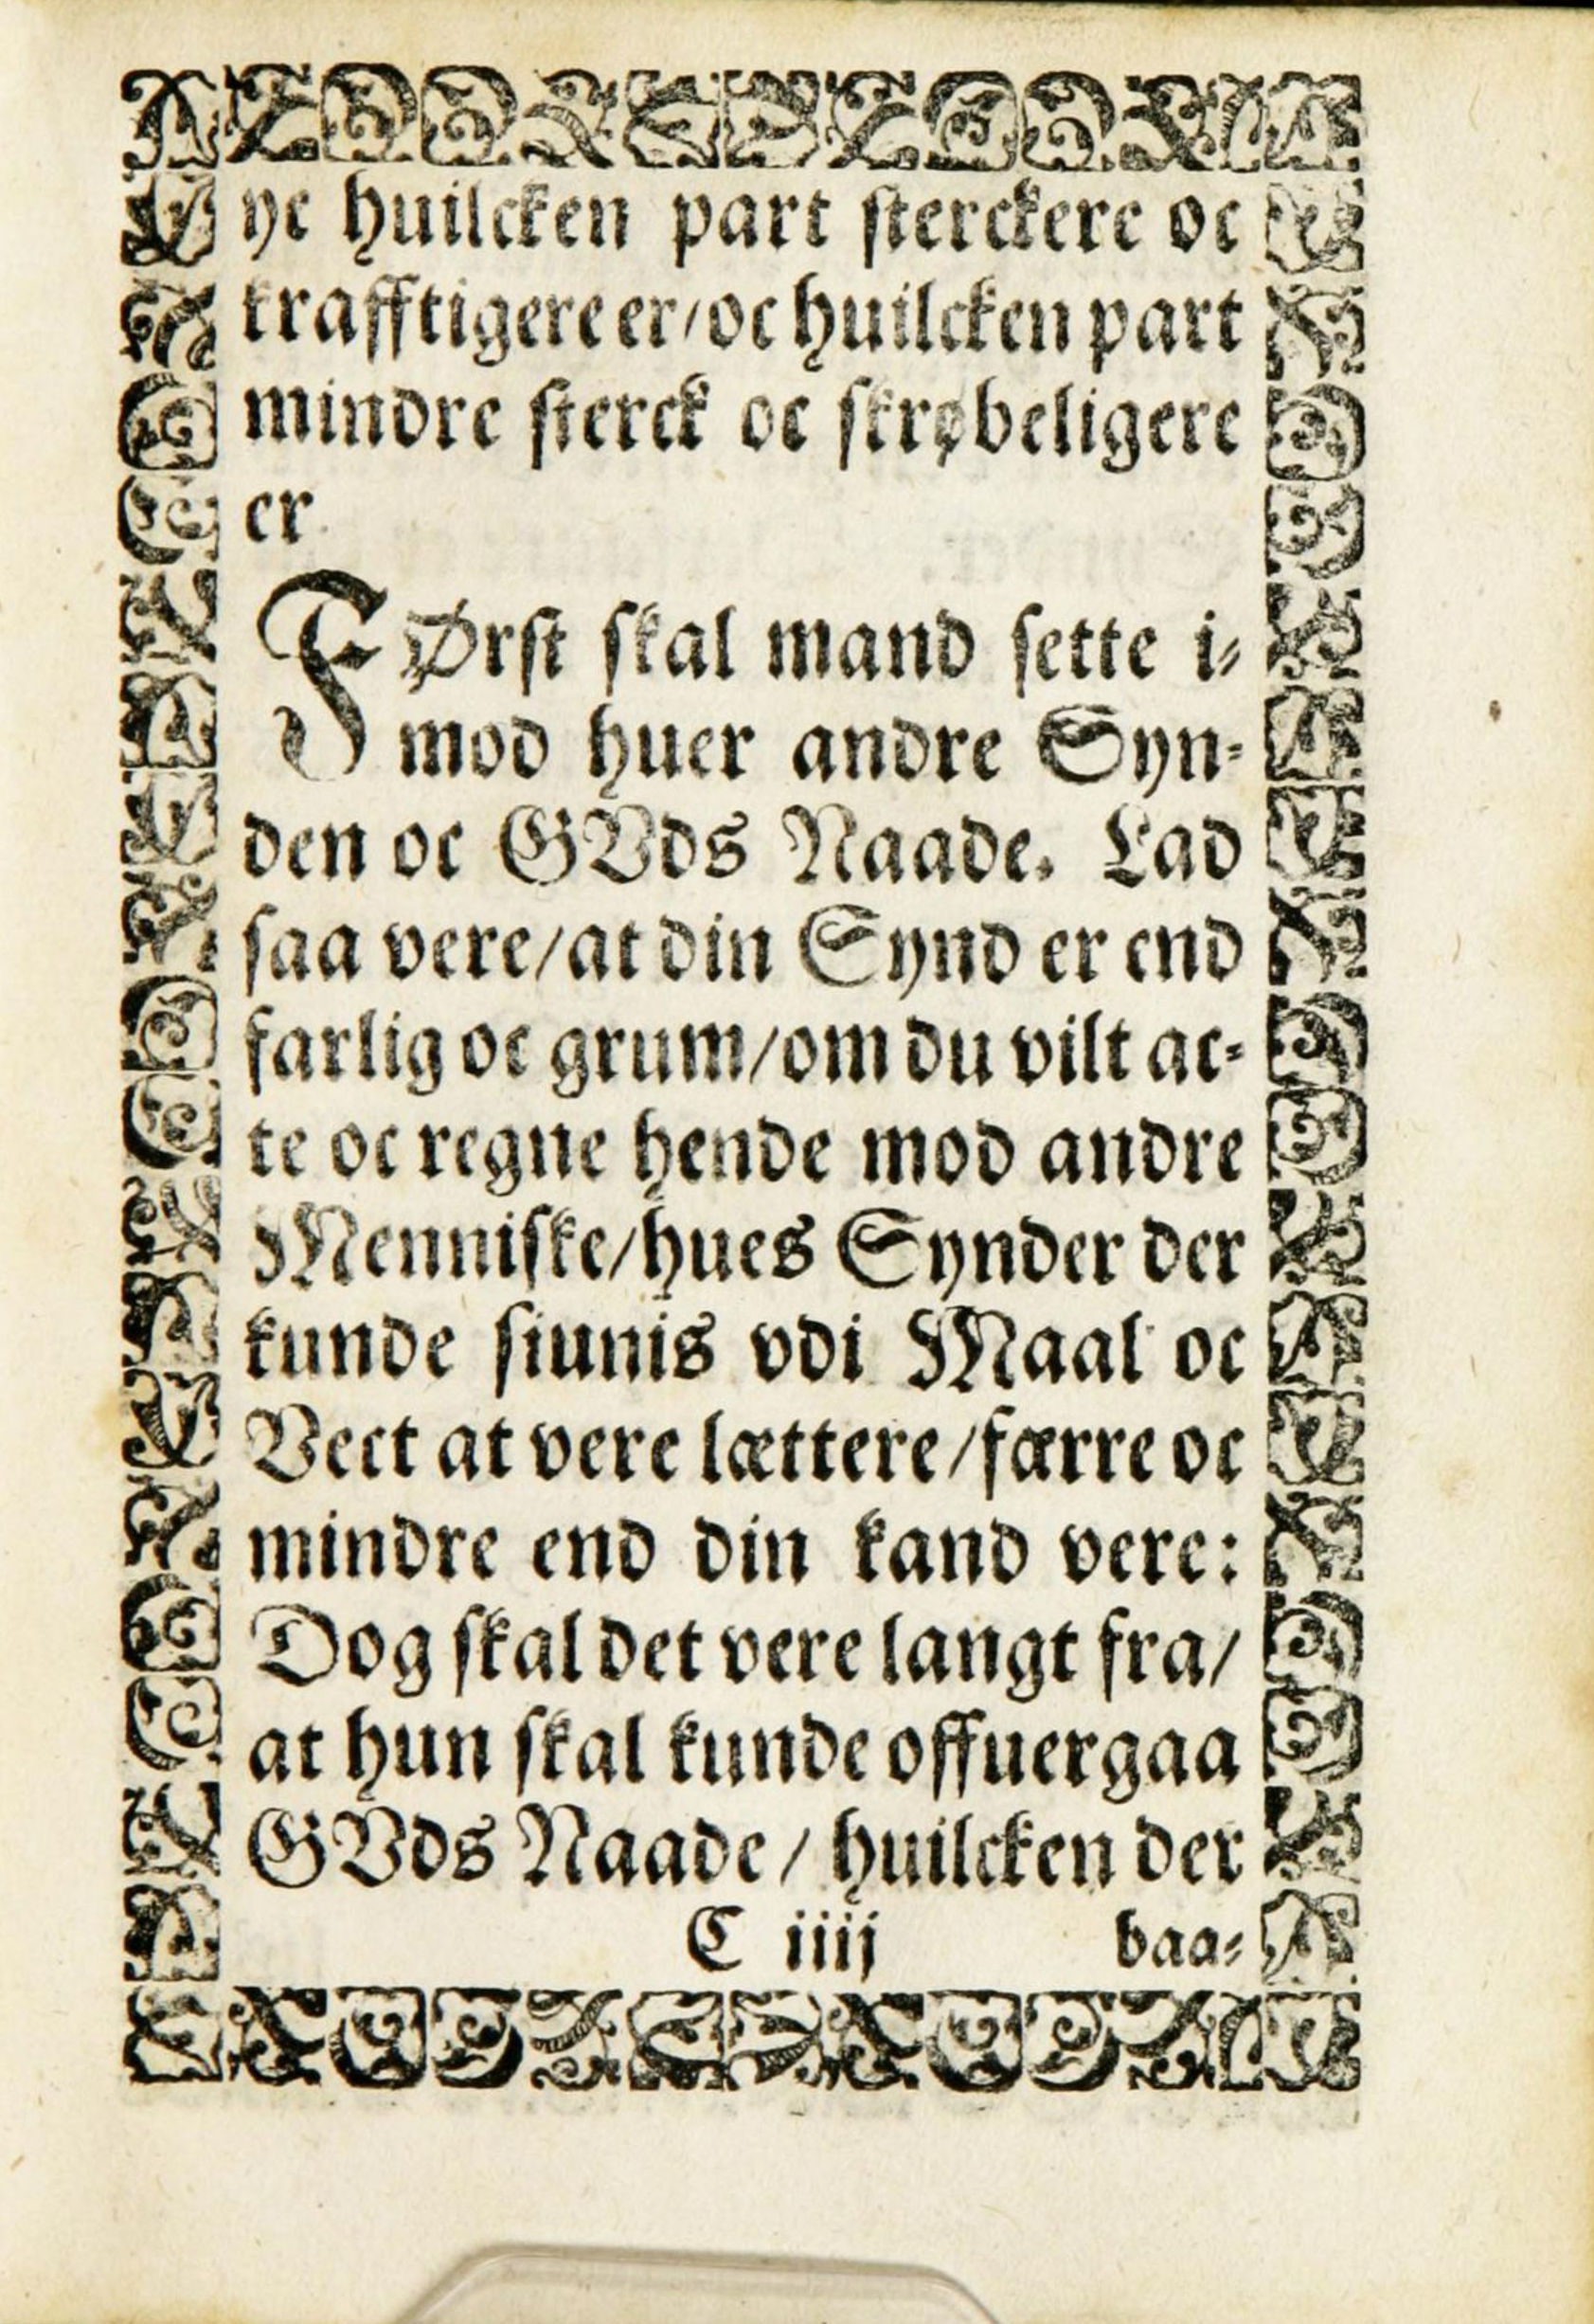 ye huilcken part sterckere oc
krafftigere er/oc huilcken part
mindre sterck oc skrøbeligere
er
FØrst skal mand sette i-
mod huer andre Syn-
den oc GVds Naade. Lad
saa vere/at din Synd er end
farlig oc grum/om du vilt ac-
te oc regne hende mod andre
Menniske/hues Synder der
kunde siunis vdi Maal oc
Vect at vere lættere/færre oc
mindre end din kand vere:
Dog skal det vere langt fra/
at hun skal kunde offuergaa
GVds Naade/ huilcken der
C iiij baa-